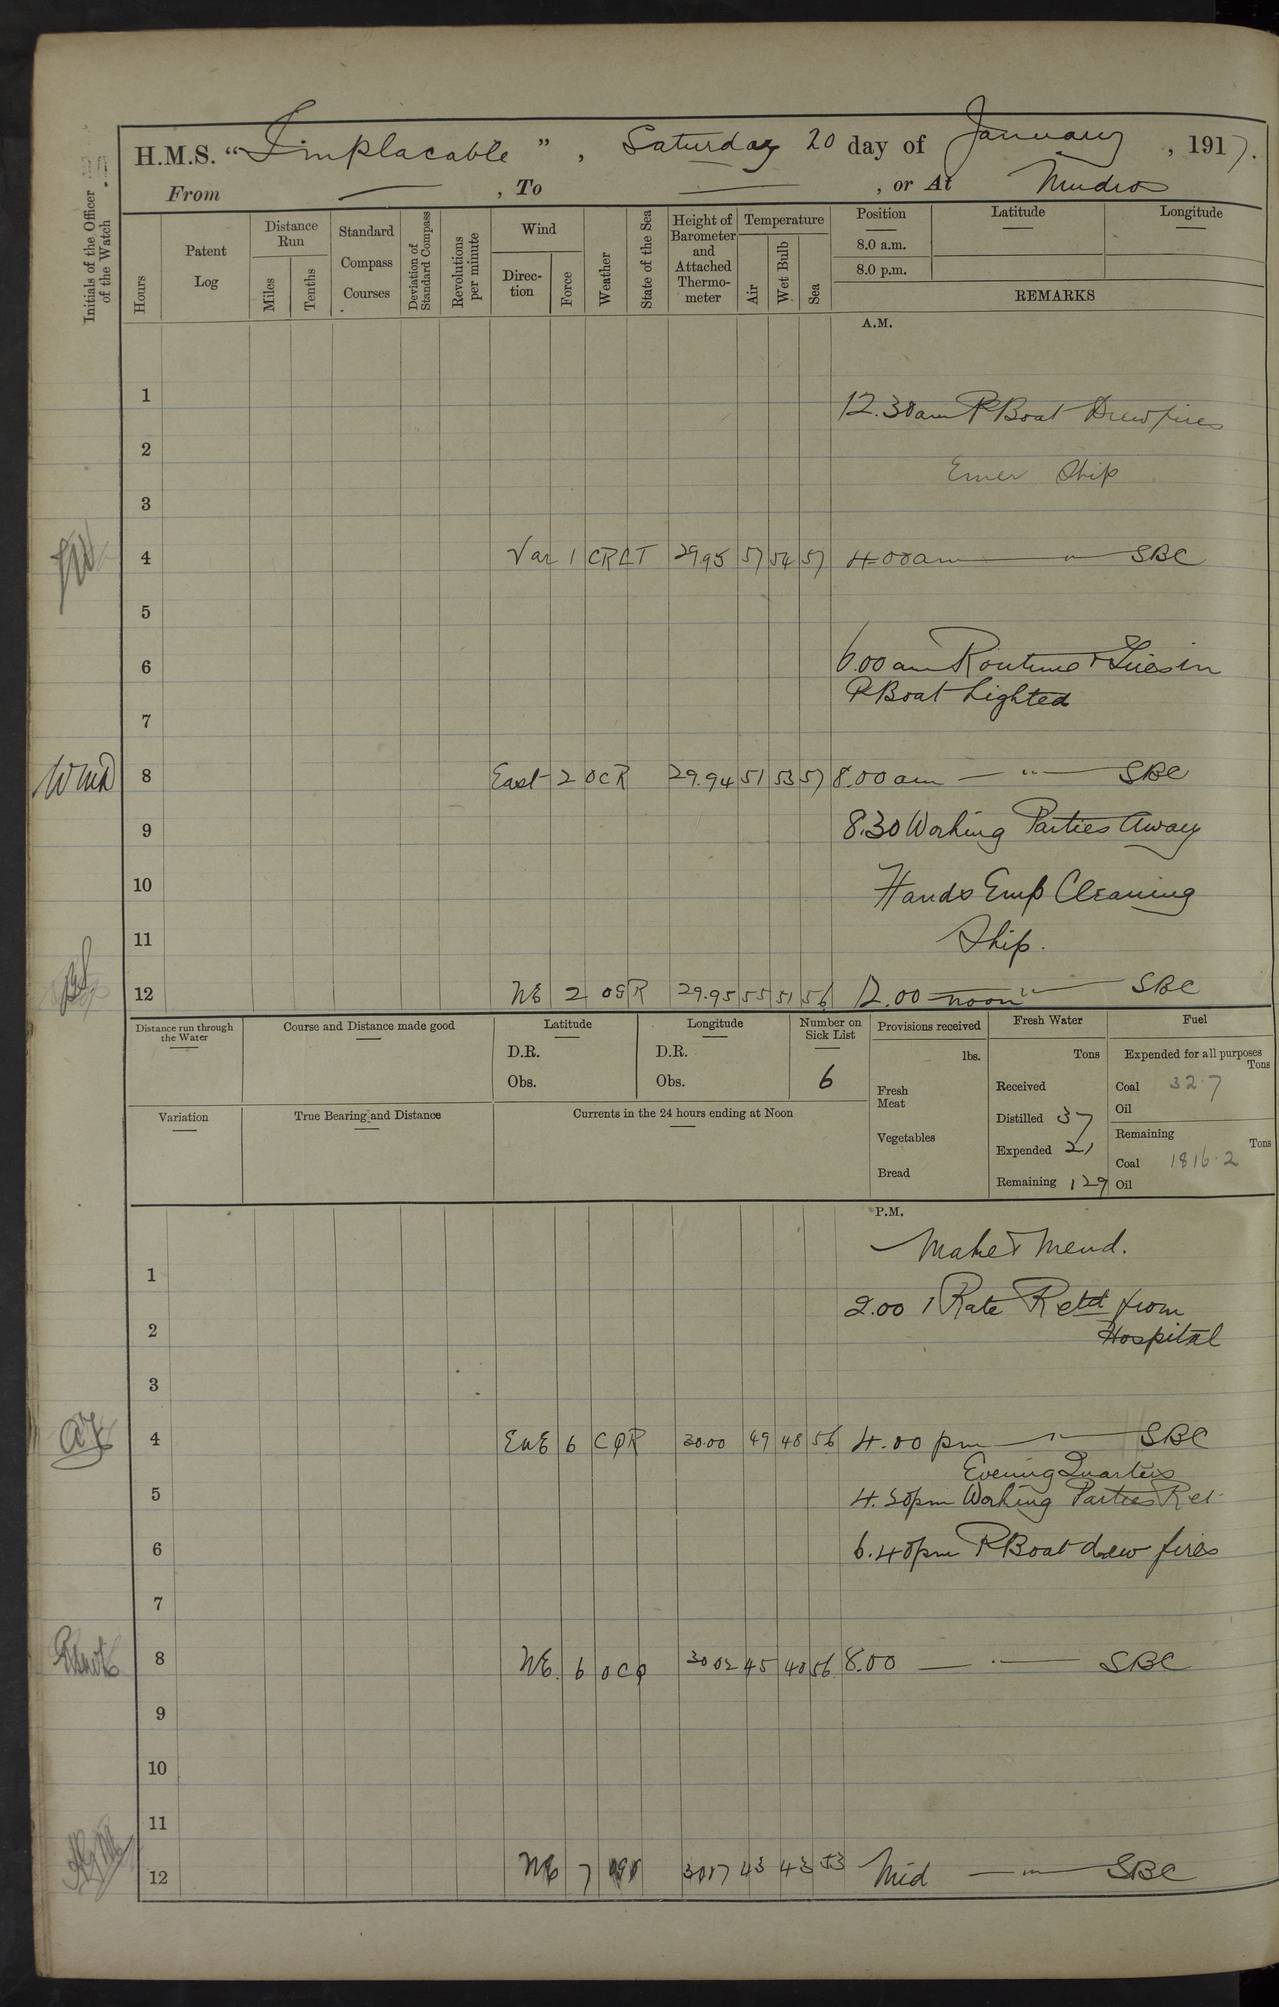 H.M.S. "Implacable", Saturday 20 day of January, 1917.
From — , To — , or At Mudros
Initials of the Officer of the Watch
Hours
Patent Log
Distance Run
Miles
Tenths
Standard Compass Courses
Deviation of Standard Compass
Revolutions per minute
Wind
Direction
Force
Weather
State of the Sea
Height of Barometer and Attached Thermometer
Temperature
Air
Wet Bulb
Sea
Position
8.0 a.m.
8.0 p.m.
Latitude
Longitude
REMARKS
A.M.
1
12.30am PBoat Drew fires
2
Emer Ship
3
4 Var 1 CRLT 29.95 57 54 57 4.00am — " — SBC
5
6 6.00am Routine & Fires in
PBoat Lighted
7
8 East 2 OCR 29.94 51 53 57 8.00am — " — SBC
9 8.30 Working Parties Away
10 Hands Emp Cleaning
11 Ship.
12 NE 2 OGR 29.95 55 51 56 12.00 noon " — SBC
Distance run through the Water
Course and Distance made good
Latitude
D.R.
Obs.
Longitude
D.R.
Obs.
Number on Sick List
6
Provisions received
lbs.
Fresh Meat
Vegetables
Bread
Fresh Water
Tons
Received
Distilled 37
Expended 21
Remaining 129
Fuel
Expended for all purposes
Tons
Coal 32.7
Oil
Remaining
Tons
Coal 1816.2
Oil
Variation
True Bearing and Distance
Currents in the 24 hours ending at Noon
P.M.
Make & Mend.
1
2.00 1 Rate Retd from
2 Hospital
3
4 ENE 6 CQR 30.00 49 48 56 4.00 pm — " — SBC
Evening Quarters
5 4.50pm Working Parties Ret.
6 6.40pm PBoat drew fires
7
8 NE. 6 OCQ 30.02 45 40 56 8.00 — " — SBC
9
10
11
12 NE 7 30.17 43 43 53 Mid — " — SBC